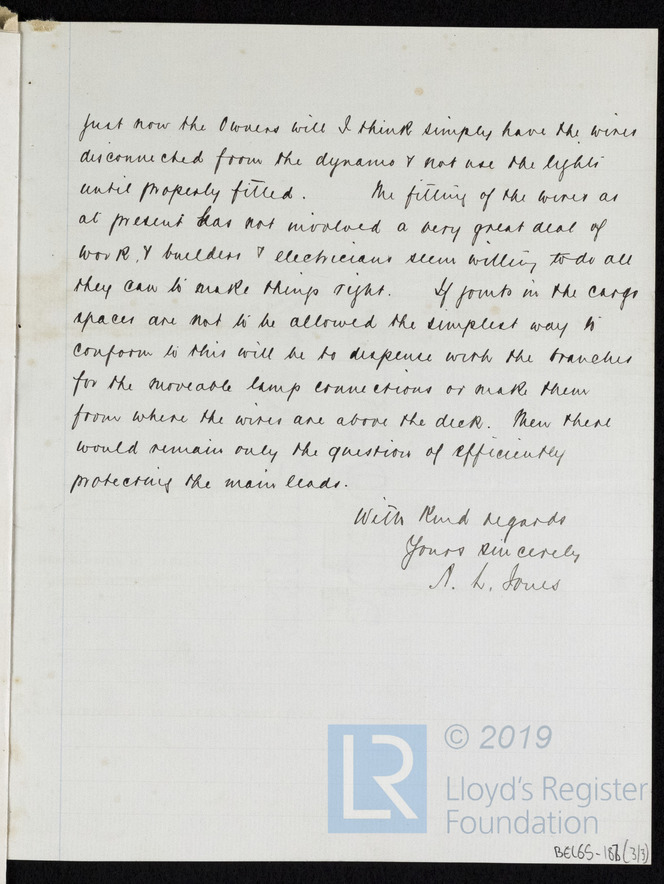 Just now the Owners will I think simply have the wires
disconnected from the dynamo & not use the lights
until properly fitted. The fitting of the wires as
at present has not involved a very great deal of
work, & builders & electricians seem willing to do all
they can to make things right. If joints in the cargo
spaces are not to be allowed the simplest way to
conform to this will be to dispense with the branches
for the moveable lamp connections or make them
from where the wires are above the deck. Then there
would remain only the question of efficiently
protecting the main leads.
With kind regards
Yours sincerely
A. L. Jones
© 2019
LR
Lloyd's Register
Foundation
BEL65-187 (3/3)